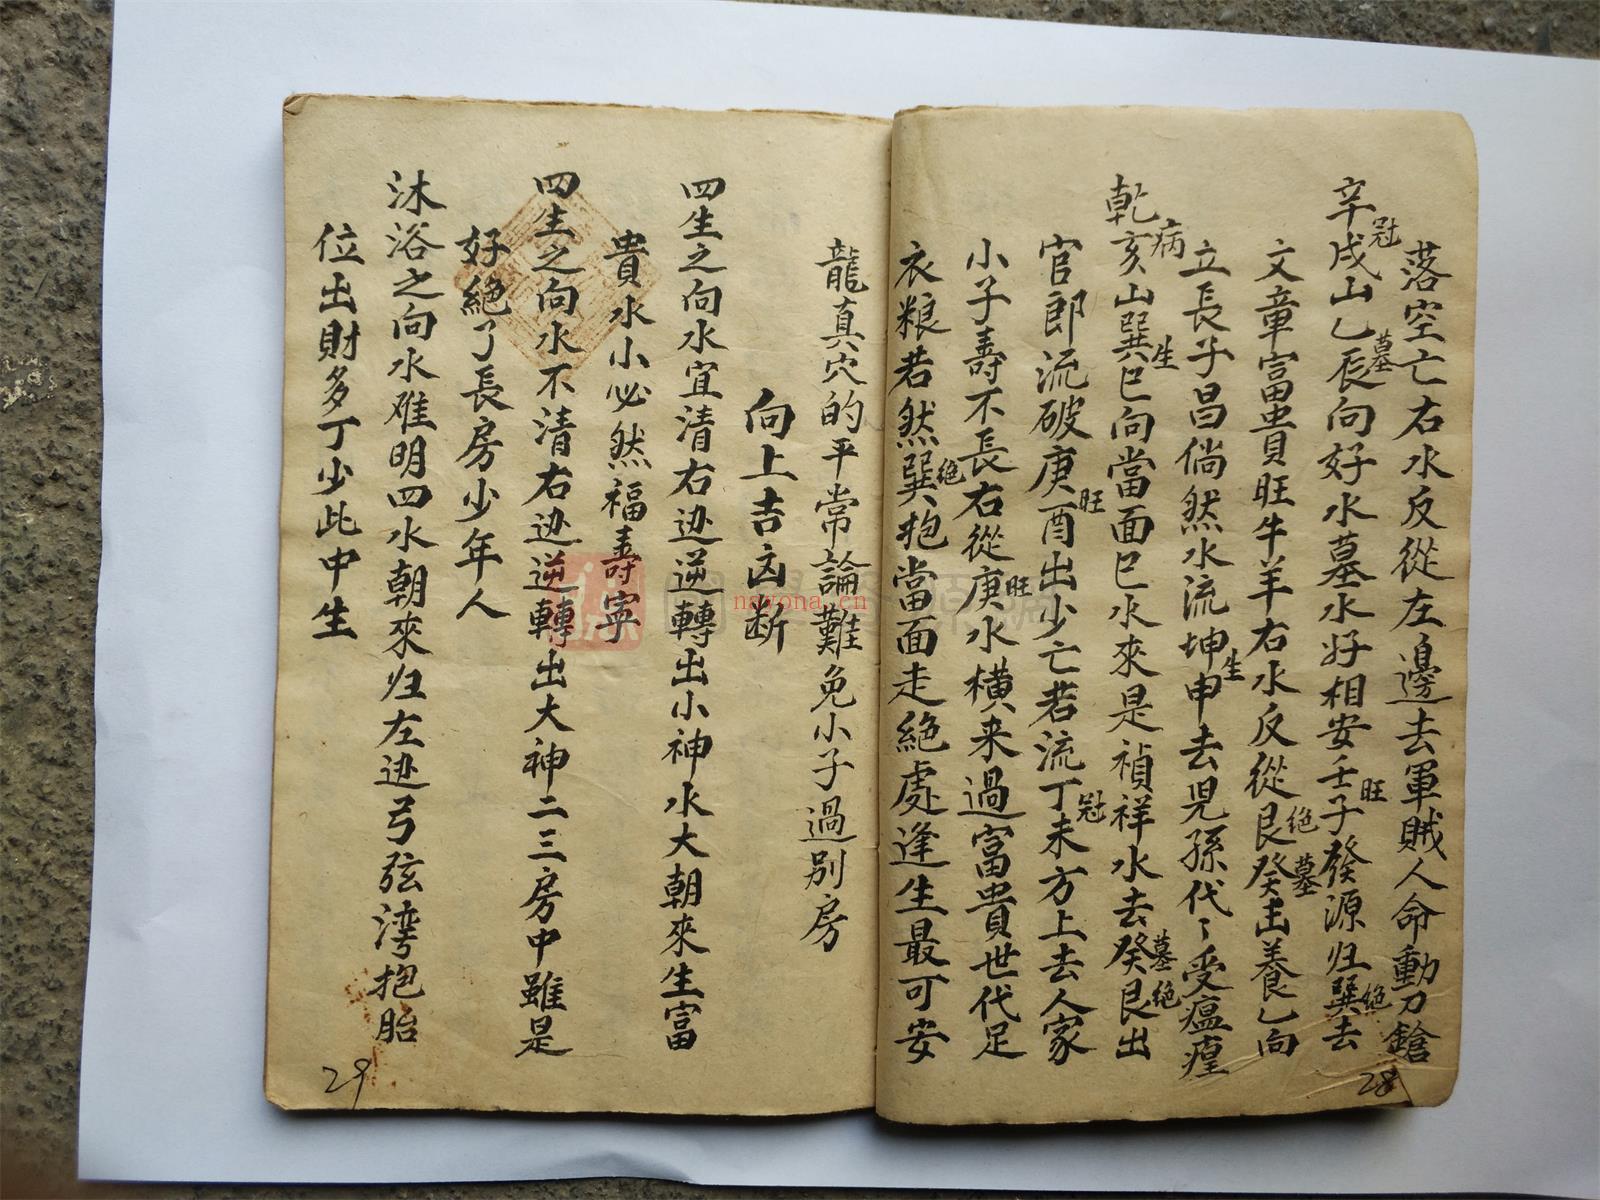 落空亡右水反從左邊去軍賊人命動刀鎗
辛戌山乙辰向好水墓水好相安壬子發源归巽去
冠
墓
旺
絶
文章富貴旺牛羊右水反從艮癸出養乙向
絶
墓
立長子昌倘然水流坤申去児孫代〻受瘟㾮
生
乾亥山巽巳向當面巳水來是禎祥水去癸艮出
病
生
墓
絶
官郎流破庚酉出少亡若流丁未方上去人家
旺
冠
小子壽不長右從庚水横来過富貴世代足
旺
衣粮若然巽抱當面走絶處逢生最可安
絶
28
龍真穴的平常論難免小子過別房
向上吉凶断
四生之向水宜清右边逆轉出小神水大朝來生富
貴水小必然福壽寧
四生之向水不清右边逆轉出大神二三房中雖是
好絶了長房少年人
沐浴之向水难明四水朝來归左边弓弦湾抱胎
位出財多丁少此中生
29
nayona.cn